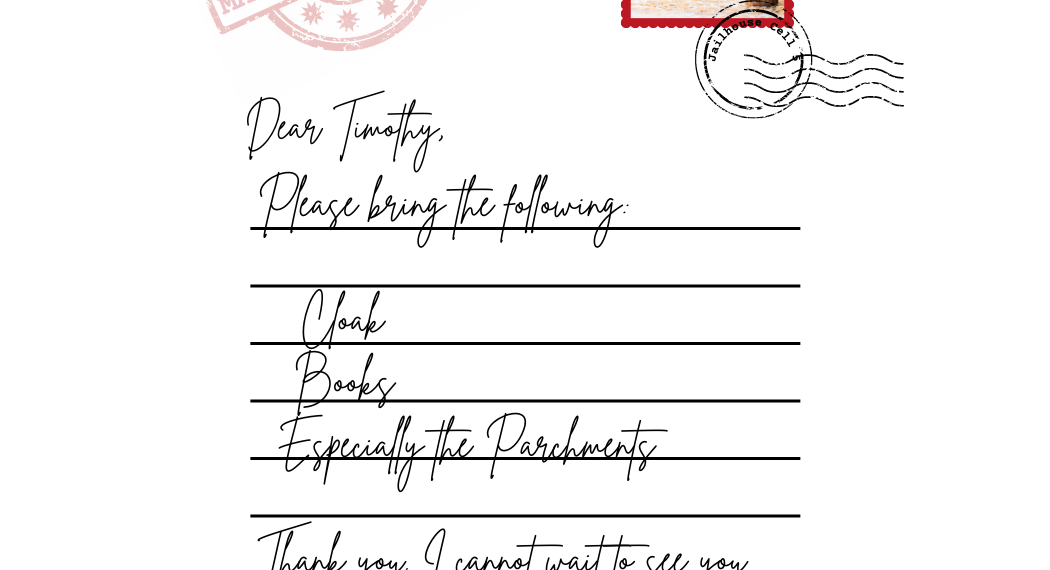 Jailhouse Cell 5
Dear Timothy,
Please bring the following:
Cloak
Books
Especially the Parchments
Thank you. I cannot wait to see you